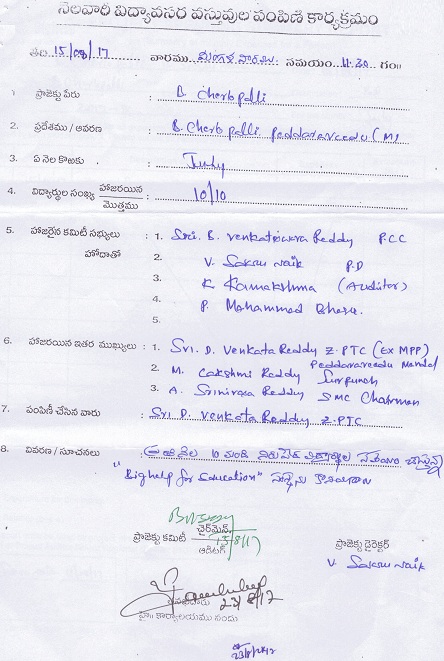 నెలవారీ విద్యావసర వస్తువుల పంపిణి కార్యక్రమం
తేది 15/08/17 వారము మంగళ వారము సమయం 11.30 గం॥
1. ప్రాజెక్టు పేరు : B. Cherlopalli
2. ప్రదేశము / ఆవరణ : B. Cherlopalli Peddaraveedu (M)
3. ఏ నెల కొఱకు : July
4. విద్యార్థుల సంఖ్య హాజరయిన / మొత్తము : 10/10
5. హాజరైన కమిటీ సభ్యులు : 1. Sri. B. Venkateswara Reddy P.C.C
హోదాతో 2. V. Sakru Naik P.D
3. K Kamakshma (Auditor)
4. P. Mohammed
5.
6. హాజరయిన ఇతర ముఖ్యులు : 1. Sri. D. Venkata Reddy Z.PTC (EX MPP)
Peddaraveedu Mandal
2. M. Lakshmi Reddy Surpunch
3. A. Srinivasa Reddy SMC Chairman
7. పంపిణీ చేసిన వారు : Sri D. Venkata Reddy Z.PTC
8. వివరణ / సూచనలు : ప్రతి నెల 10 మంది నిరుపేద విద్యార్థులకు సహాయం చేస్తున్న
"Big help for Education" సంస్థను
చైర్‌మైన్
ప్రాజెక్టు కమిటీ 15/8/17
ఆడిటర్
ప్రాజెక్టు డైరెక్టర్
V. Sakru Naik
23/8/17
హై॥ కార్యాలయము నందు
23/8/2017